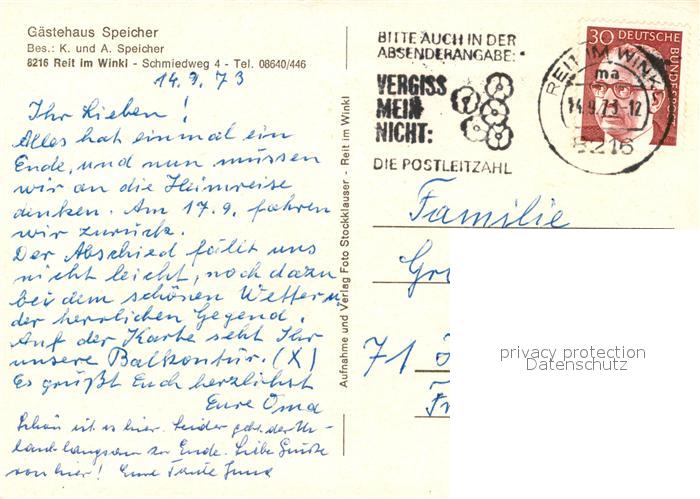 Gästehaus Speicher
Bes.: K. und A. Speicher
8216 Reit im Winkl - Schmiedweg 4 - Tel. 08640/446
14.9.73
Ihr Lieben!
Alles hat einmal ein
Ende, und nun müssen
wir an die Heimreise
denken. Am 17.9. fahren
wir zurück.
Der Abschied fällt uns
nicht leicht, noch dazu
bei dem schönen Wetter u.
der herrlichen Gegend.
Auf der Karte seht Ihr
unsere Balkontür. (X)
Es grüßt Euch herzlichst
Eure Oma
Schön ist es hier. Leider geht der Ur-
laub langsam zu Ende. Liebe Grüße
von hier! Eure Tante
Aufnahme und Verlag Foto Stockklauser - Reit im Winkl
BITTE AUCH IN DER
ABSENDERANGABE:
VERGISS
MEIN
NICHT:
DIE POSTLEITZAHL
REIT IM WINKL
ma
14.9.73-12
8216
30 DEUTSCHE
BUNDESPOST
Familie
Gr
71
Fr
privacy protection
Datenschutz